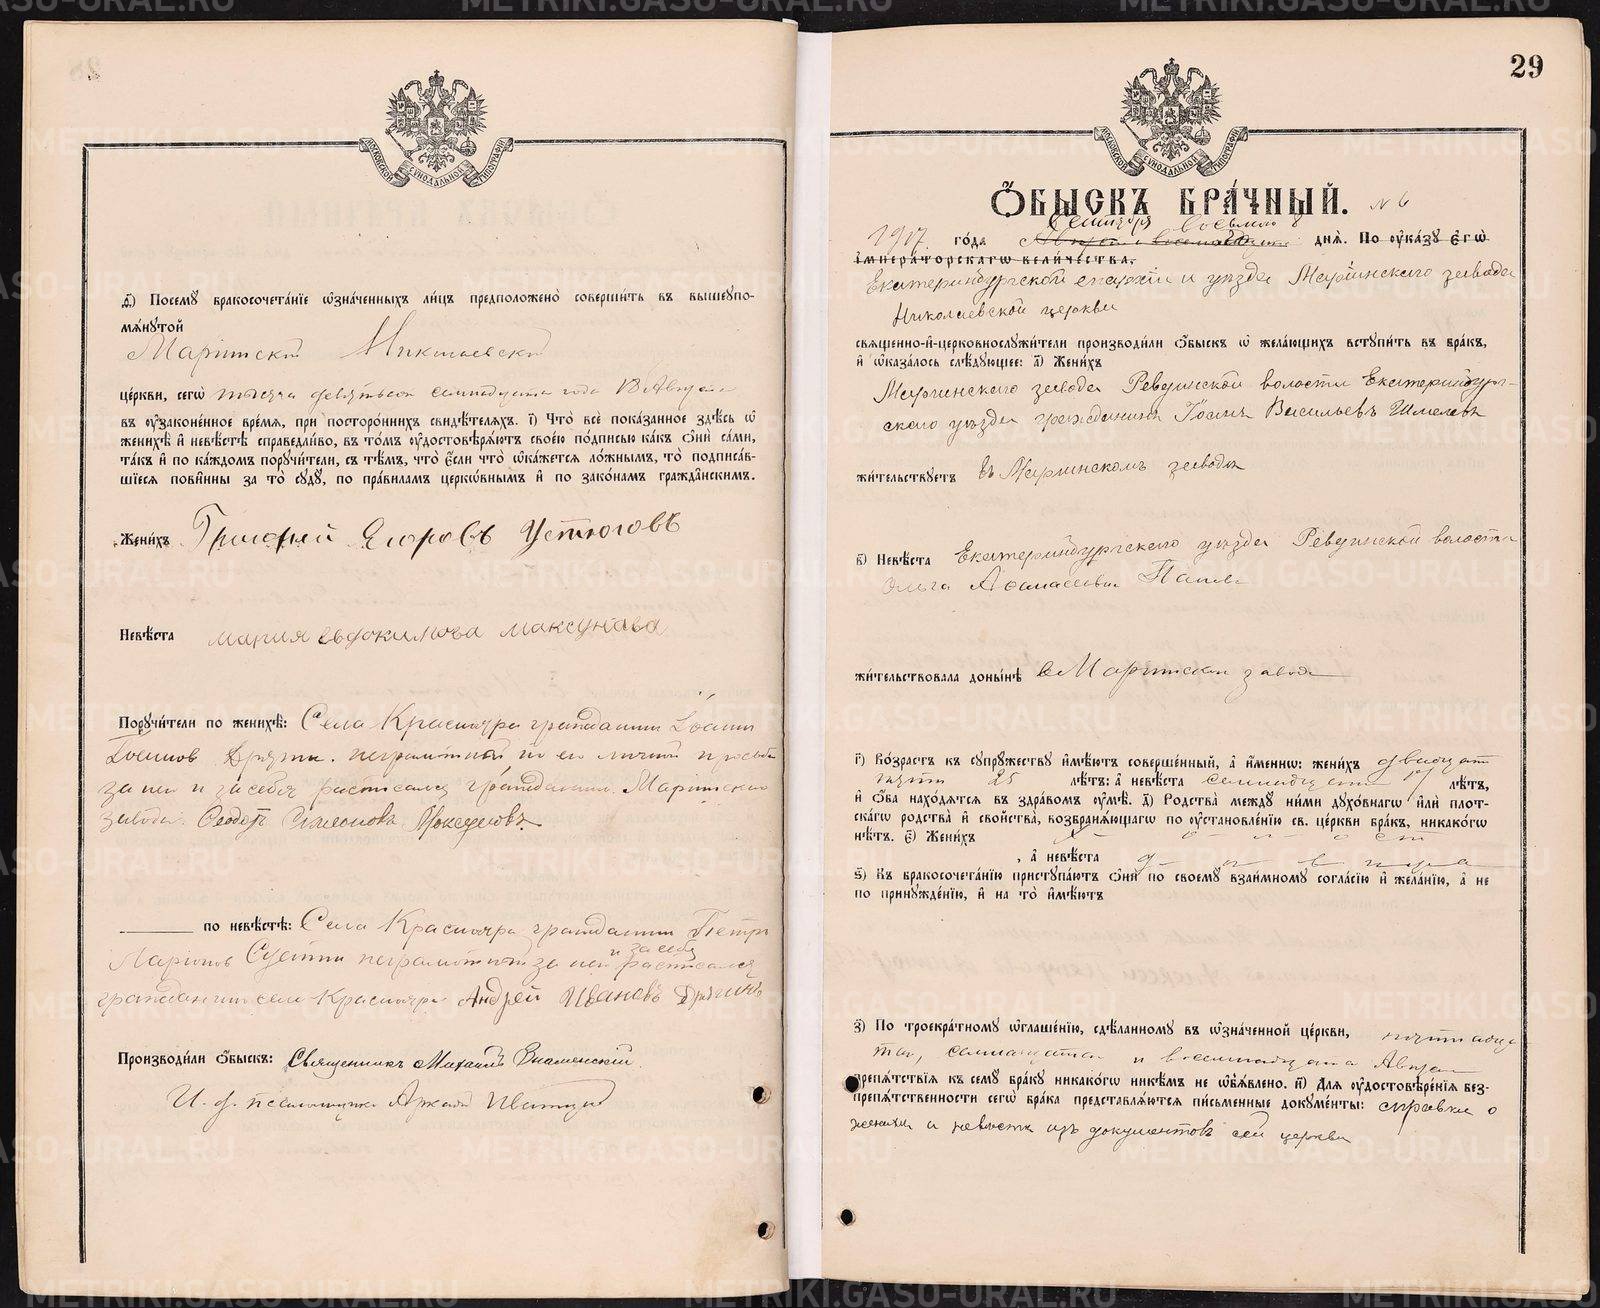 МОСКОВСКОЙ СѴНОДАЛЬНОЙ ТИПОГРАФІИ
д҃) Посемꙋ бракосочета́нїе ѡ҆зна́ченныхъ ли́цъ предположено̀ соверши́ть въ вышеꙋпо-
мѧ́нꙋтой
Марiинской Николаевской
це́ркви, сегѡ̀ тысяча девятьсот семнадцатого года 18 Августа
въ ᲂу҆зако́ненное вре́мѧ, при посторо́ннихъ свидѣ́телѧхъ. і҃) Что̀ всѐ пока́занное здѣ́сь ѡ҆
женихѣ̀ и҆ невѣ́стѣ справедли́во, въ то́мъ ᲂу҆достовѣрѧ́ютъ свое́ю по́дписью ка́къ ѻ҆нѝ са́ми,
та́къ и҆ по ка́ждомъ порꙋчи́тели, съ тѣ́мъ, что̀ є҆́сли что̀ ѡ҆ка́жетсѧ ло́жнымъ, то̀ подписа́в-
шїесѧ пови́нны за то̀ сꙋдꙋ̀, по пра́виламъ церко́внымъ и҆ по зако́намъ гражда́нскимъ.
Жени́хъ Григорий Егоровъ Устюговъ
Невѣ́ста мария евдокимова максунова
Порꙋчи́тели по женихѣ̀: Села Краснояра гражданин Iоанн
неграмотной, по его личной просьбе
за него и за себя расписался гражданин Марiинского
завода Федотъ
по невѣ́стѣ: Села Краснояра гражданин Петр
Ларионов неграмотный за него и за себя расписался
гражданин села Краснояра Андрей Ивановъ
Производи́ли ѻ҆́быскъ: Священникъ Михаилъ Знаменский
И. д. псаломщика Аркадий
29
МОСКОВСКОЙ СѴНОДАЛЬНОЙ ТИПОГРАФІИ
Ѻ҆́БЫСКЪ БРА́ЧНЫЙ. № 6
Сентября восьмого 8
1917 го́да Августа днѧ̀. По ᲂу҆ка́зꙋ є҆гѡ̀
и҆мпера́торскагѡ вели́чества,
Екатеринбургской епархiи и уезда Марiинского завода
Николаевской церкви
свѧще́нно-и҆-церковнослꙋжи́тели производи́ли ѻ҆́быскъ ѡ҆ жела́ющихъ встꙋпи́ть въ бра́къ,
и҆ ѡ҆каза́лось слѣ́дꙋющее: а҃) Жени́хъ
Марiинского завода Ревдинской волости Екатеринбург-
ского уезда гражданинъ Iоаннъ Васильевъ Шмелевъ
жи́тельствꙋетъ въ Марiинскомъ заводе
в҃) Невѣ́ста Екатеринбургского уезда Ревдинской волости
Ольга Афанасьевна
жи́тельствовала доны́нѣ в Марiинском заводе
г҃) Во́зрастъ къ сꙋпрꙋ́жествꙋ и҆мѣ́ютъ соверше́нный, а҆ и҆́менно: жени́хъ двадцать
пять 25 лѣ́тъ: а҆ невѣ́ста семнадцати 17 лѣ́тъ,
и҆ ѻ҆́ба нахо́дѧтсѧ въ здра́вомъ ᲂу҆мѣ̀. д҃) Родства̀ междꙋ̀ ни́ми дꙋхо́внагѡ и҆лѝ пло́т-
скагѡ родства̀ и҆ сво́йства, возбранѧ́ющагѡ по ᲂу҆становле́нїю св. це́ркви бра́къ, никако́гѡ
нѣ́тъ. є҃) Жени́хъ холост
, а҆ невѣ́ста девица
ѕ҃) Къ бракосочета́нїю пристꙋпа́ютъ ѻ҆нѝ по своемꙋ̀ взаи́мномꙋ согла́сїю и҆ жела́нїю, а҆ не
по принꙋжде́нїю, и҆ на то̀ и҆мѣ́ютъ
з҃) По троекра́тномꙋ ѡ҆глаше́нїю, сдѣ́ланномꙋ въ ѡ҆зна́ченной це́ркви, пятнадца-
того, семнадцатого и восемнадцатого Августа
препѧ́тствїѧ къ семꙋ̀ бра́кꙋ никако́гѡ никѣ́мъ не ѡ҆б̾ѧ́влено. и҃) Длѧ ᲂу҆достовѣре́нїѧ без-
препѧ́тственности сегѡ̀ бра́ка представлѧ́ютсѧ пи́сьменные докꙋме́нты: справки о
женихе и невесте изъ документовъ сей церкви